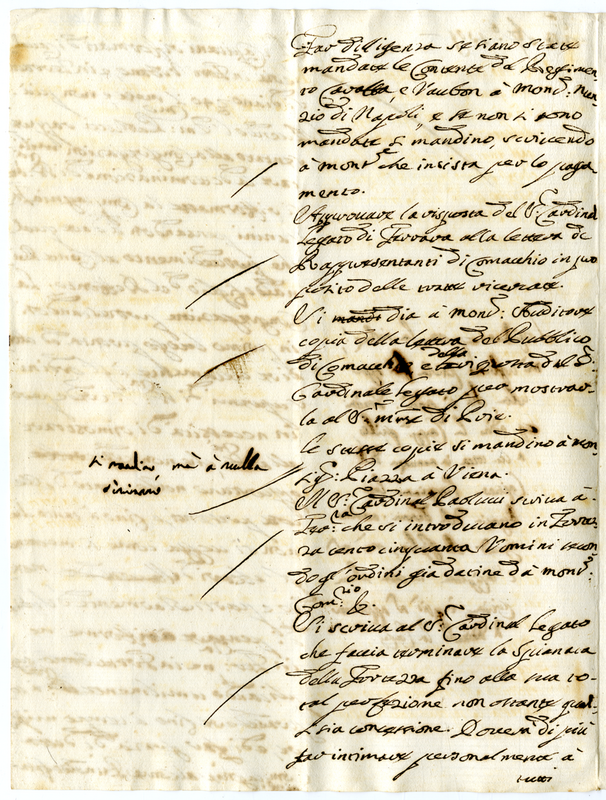 Far diligenza se siano state
mandate le Contente del Regimen
to Cavalla, e Vaubon à Mons: Nun
zio di Napoli, e se non si sono
mandate si mandino, scrivendo
à Mons:re che insista per lo paga
mento.
Approvare la risposta del S: Cardinal
Legato di Ferrara alla lettera de
Rappresentanti di Comacchio in pro
posito delle tratte
Si dia à Mons: Auditore
copia della lettera del Pubblico
di Comacchio e della risposta del S:
Cardinale Legato per mostrar
la al S: di Priè.
le stesse copie si mandino à Mon
sig: Piazza à Viena.
si mandino mà à nulla
Al S: Cardinal Paolucci scriva à
che si introducano in Forte
zza cento cinquanta Uomini secon
do gl'ordini già datine dà Mons:
Com:rio &.
Si scriva al S: Cardinal Legato
che faccia terminare la Spianata
della Fortezza fino alla sua to
tal perfezione non ostante qual
si sia concessione. Doverà di più
far intimare personalmente à
tutti